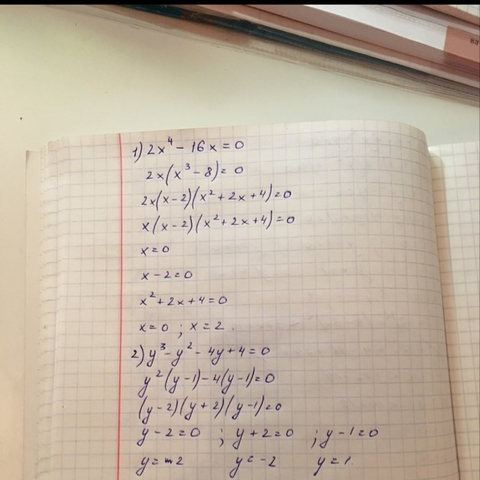 1) 2x⁴ - 16x = 0
2x(x³ - 8) = 0
2x(x-2)(x² + 2x + 4) = 0
x(x-2)(x² + 2x + 4) = 0
x = 0
x - 2 = 0
x² + 2x + 4 = 0
x = 0 ; x = 2.
2) y³ - y² - 4y + 4 = 0
y²(y-1) - 4(y-1) = 0
(y-2)(y+2)(y-1) = 0
y - 2 = 0 ; y + 2 = 0 ; y - 1 = 0
y = 2 y = -2 y = 1